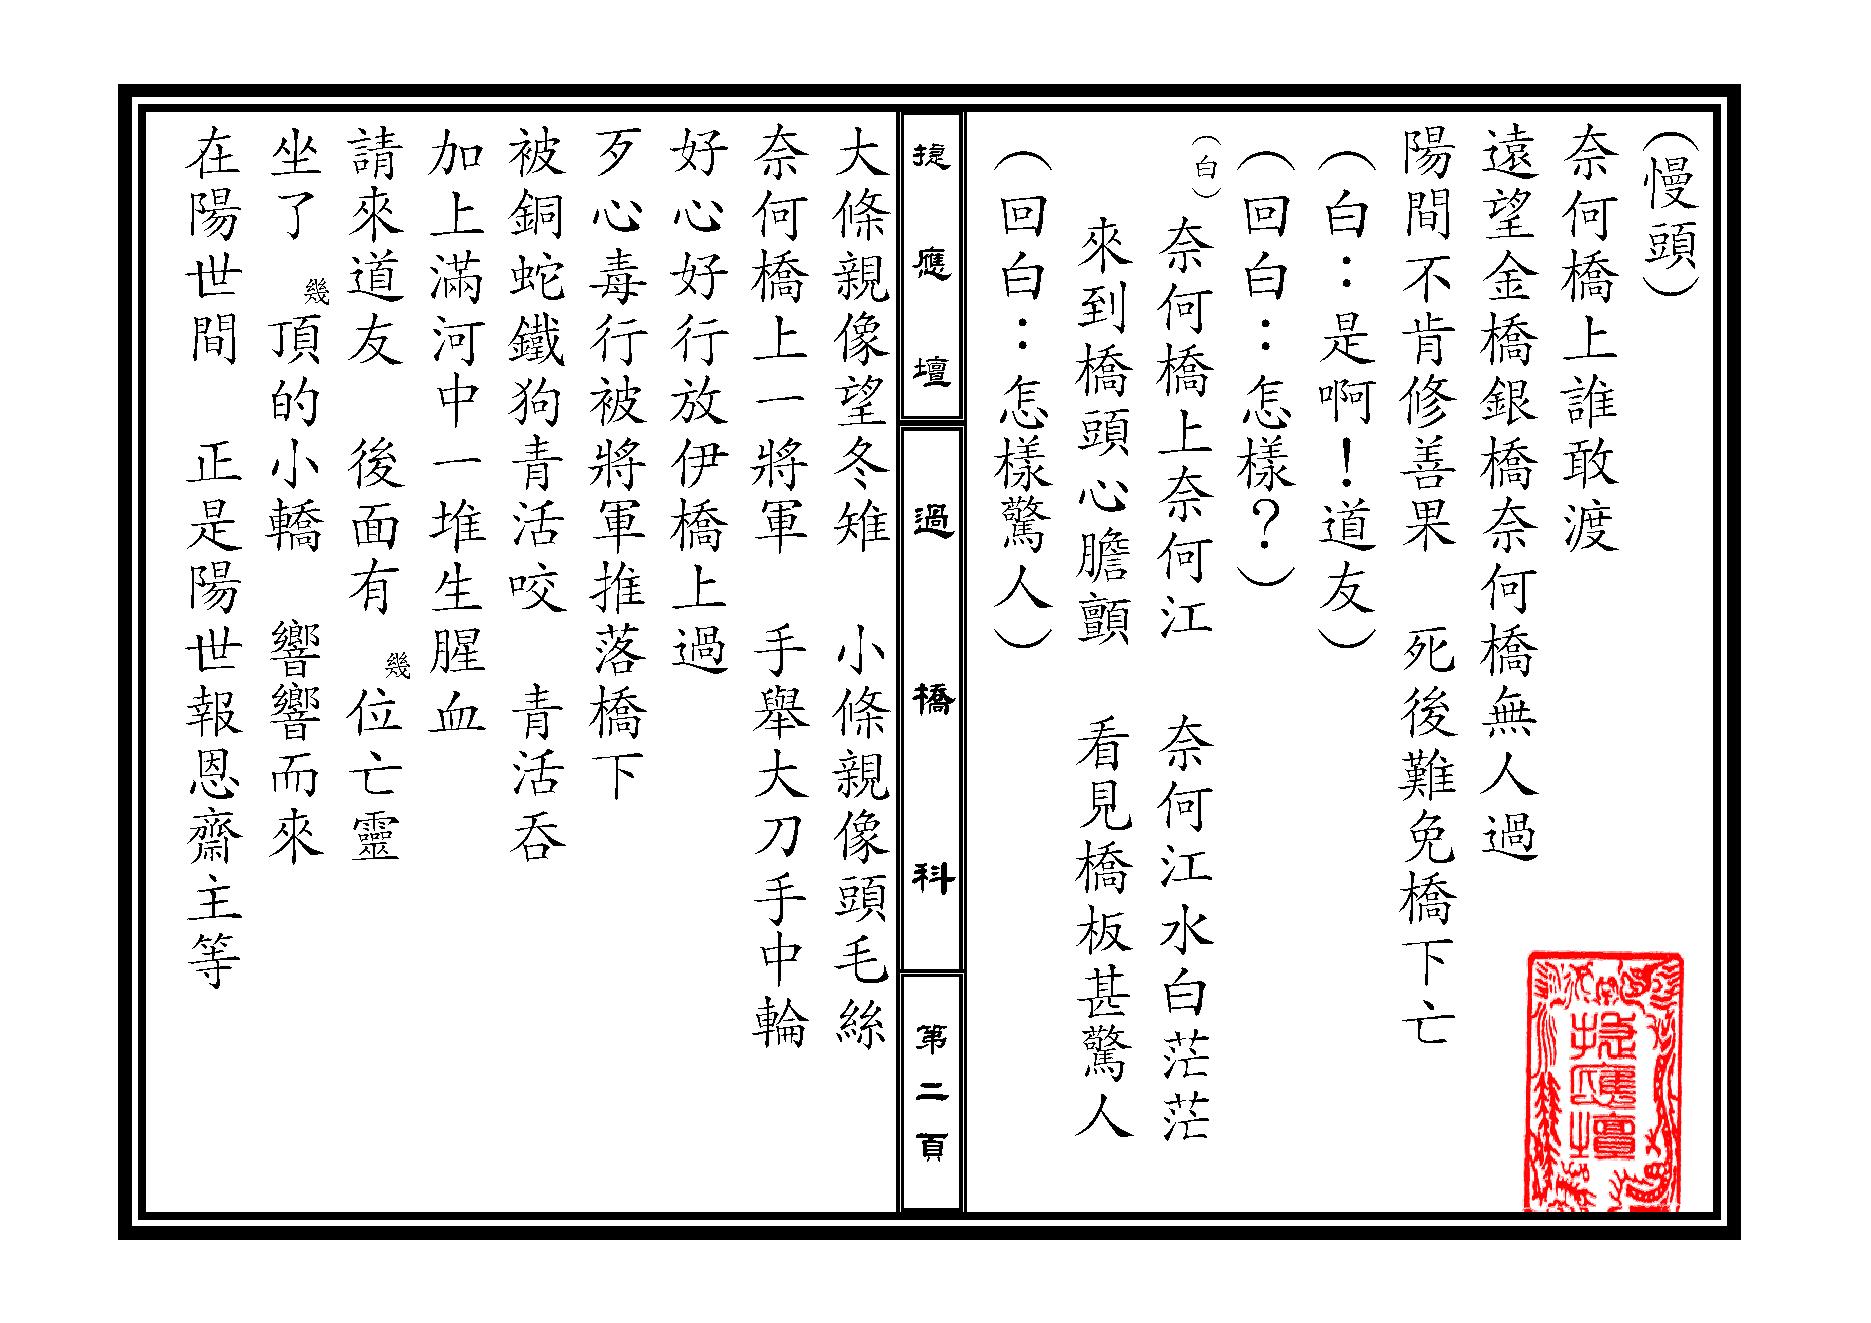 （慢頭）
奈何橋上誰敢渡
遠望金橋銀橋奈何橋無人過
陽間不肯修善果　死後難免橋下亡
（白：是啊！道友）
（回白：怎樣？）
（白）奈何橋上奈何江　奈何江水白茫茫
來到橋頭心膽顫　看見橋板甚驚人
（回白：怎樣驚人）
捷應壇
過橋科
第二頁
大條親像望冬雉　小條親像頭毛絲
奈何橋上一將軍　手舉大刀手中輪
好心好行放伊橋上過
歹心毒行被將軍推落橋下
被銅蛇鐵狗青活咬　青活吞
加上滿河中一堆生腥血
請來道友　後面有幾位亡靈
坐了幾頂的小轎　響響而來
在陽世間　正是陽世報恩齋主等
捷應壇